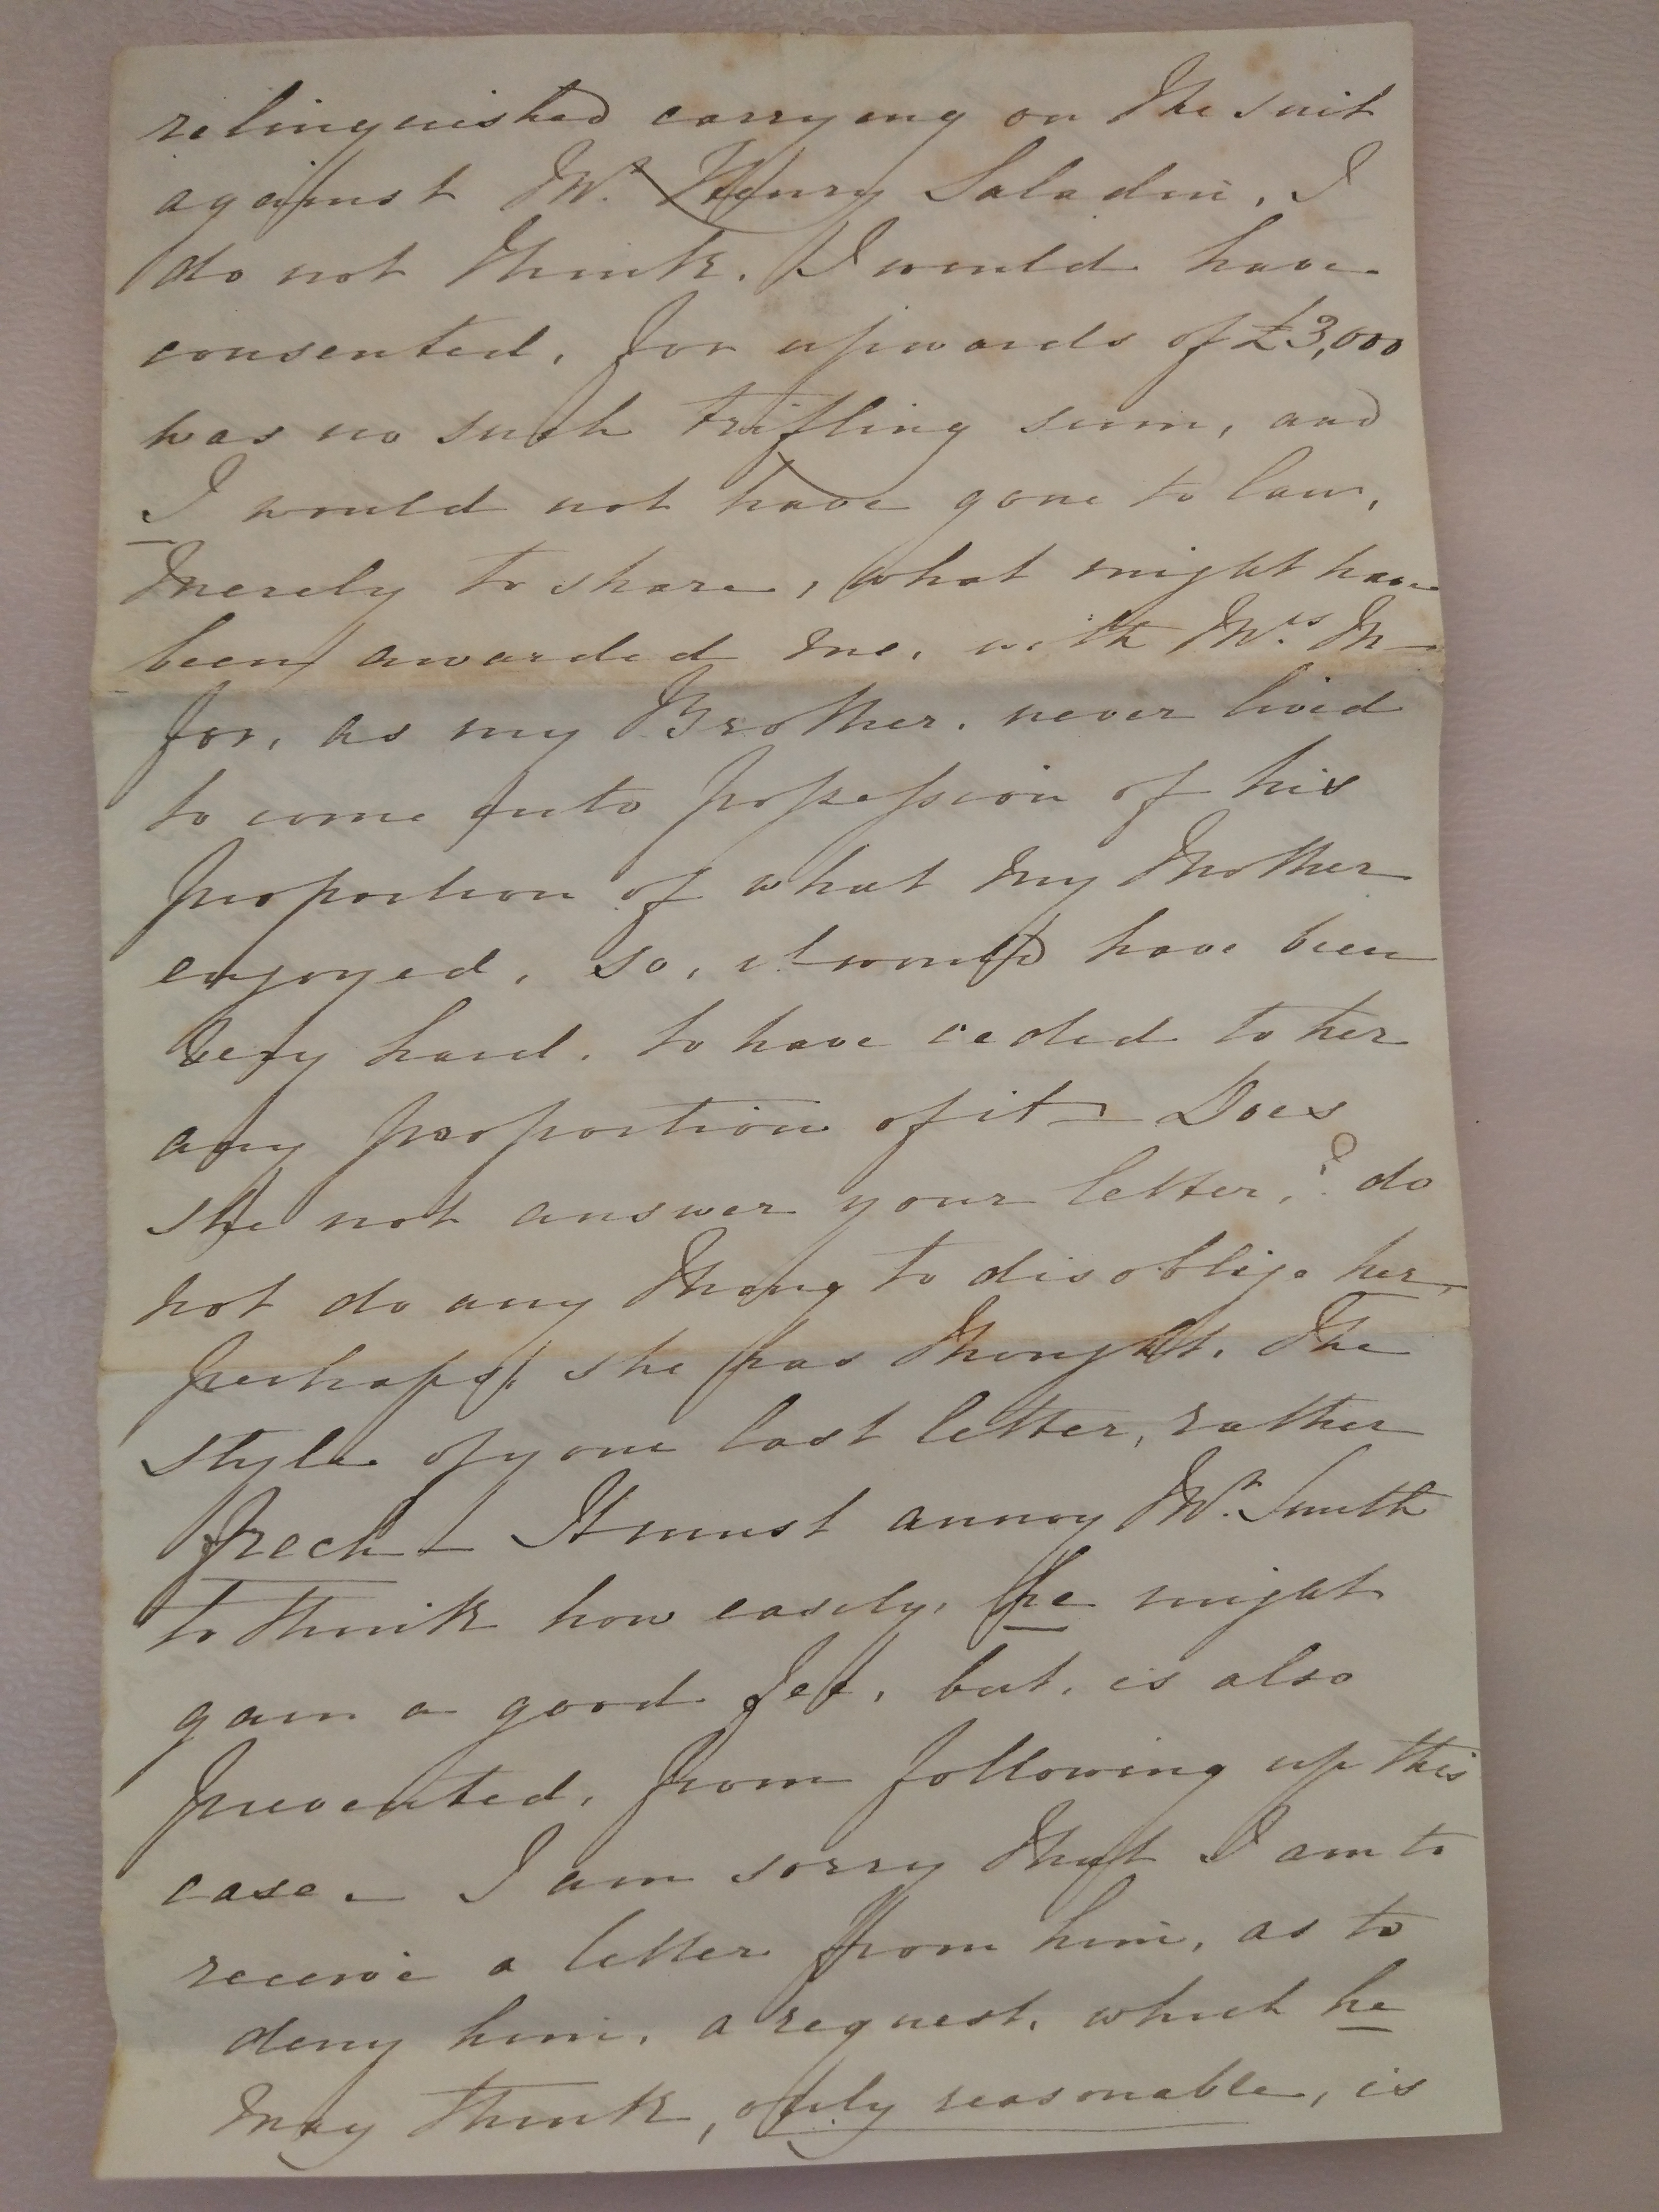 relinquished carrying on the suit
against Mr. Henry Saladin, I
do not think. I would have
consented, for upwards of £3,000
was no such trifling sum, and
I would not have gone to law,
merely to share, what might have
been awarded me, with Mrs. M—
for, as my Brother, never lived
to come into possession of his
proportion of what my Mother
enjoyed, so, it would have been
very hard, to have ceded to her
any proportion of it – Does
she not answer your letter,? do
not do any thing to disoblige her,
perhaps, she has thought, the
style of your last letter, rather
frech – It must annoy Mr. Smith
to think how easily, he might
gain a good fee, but, is also
prevented, from following up this
case – I am sorry that I am to
receive a letter from him, as to
deny him, a request, which he
may think, only reasonable, is